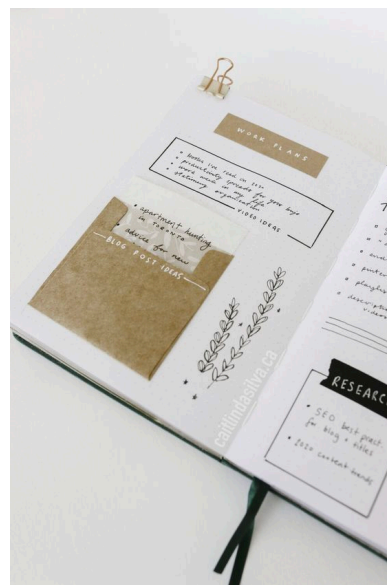 WORK PLANS
• books I've read in 2021
• productivity spreads for your bujo
• work week in my life
• stationery organization
VIDEO IDEAS
• apartment hunting
in TORONTO
• advice for new
BLOG POST IDEAS
caitlindasilva.ca
RESEARC
• SEO best pract.
for blog + titles
• 2020 content trends